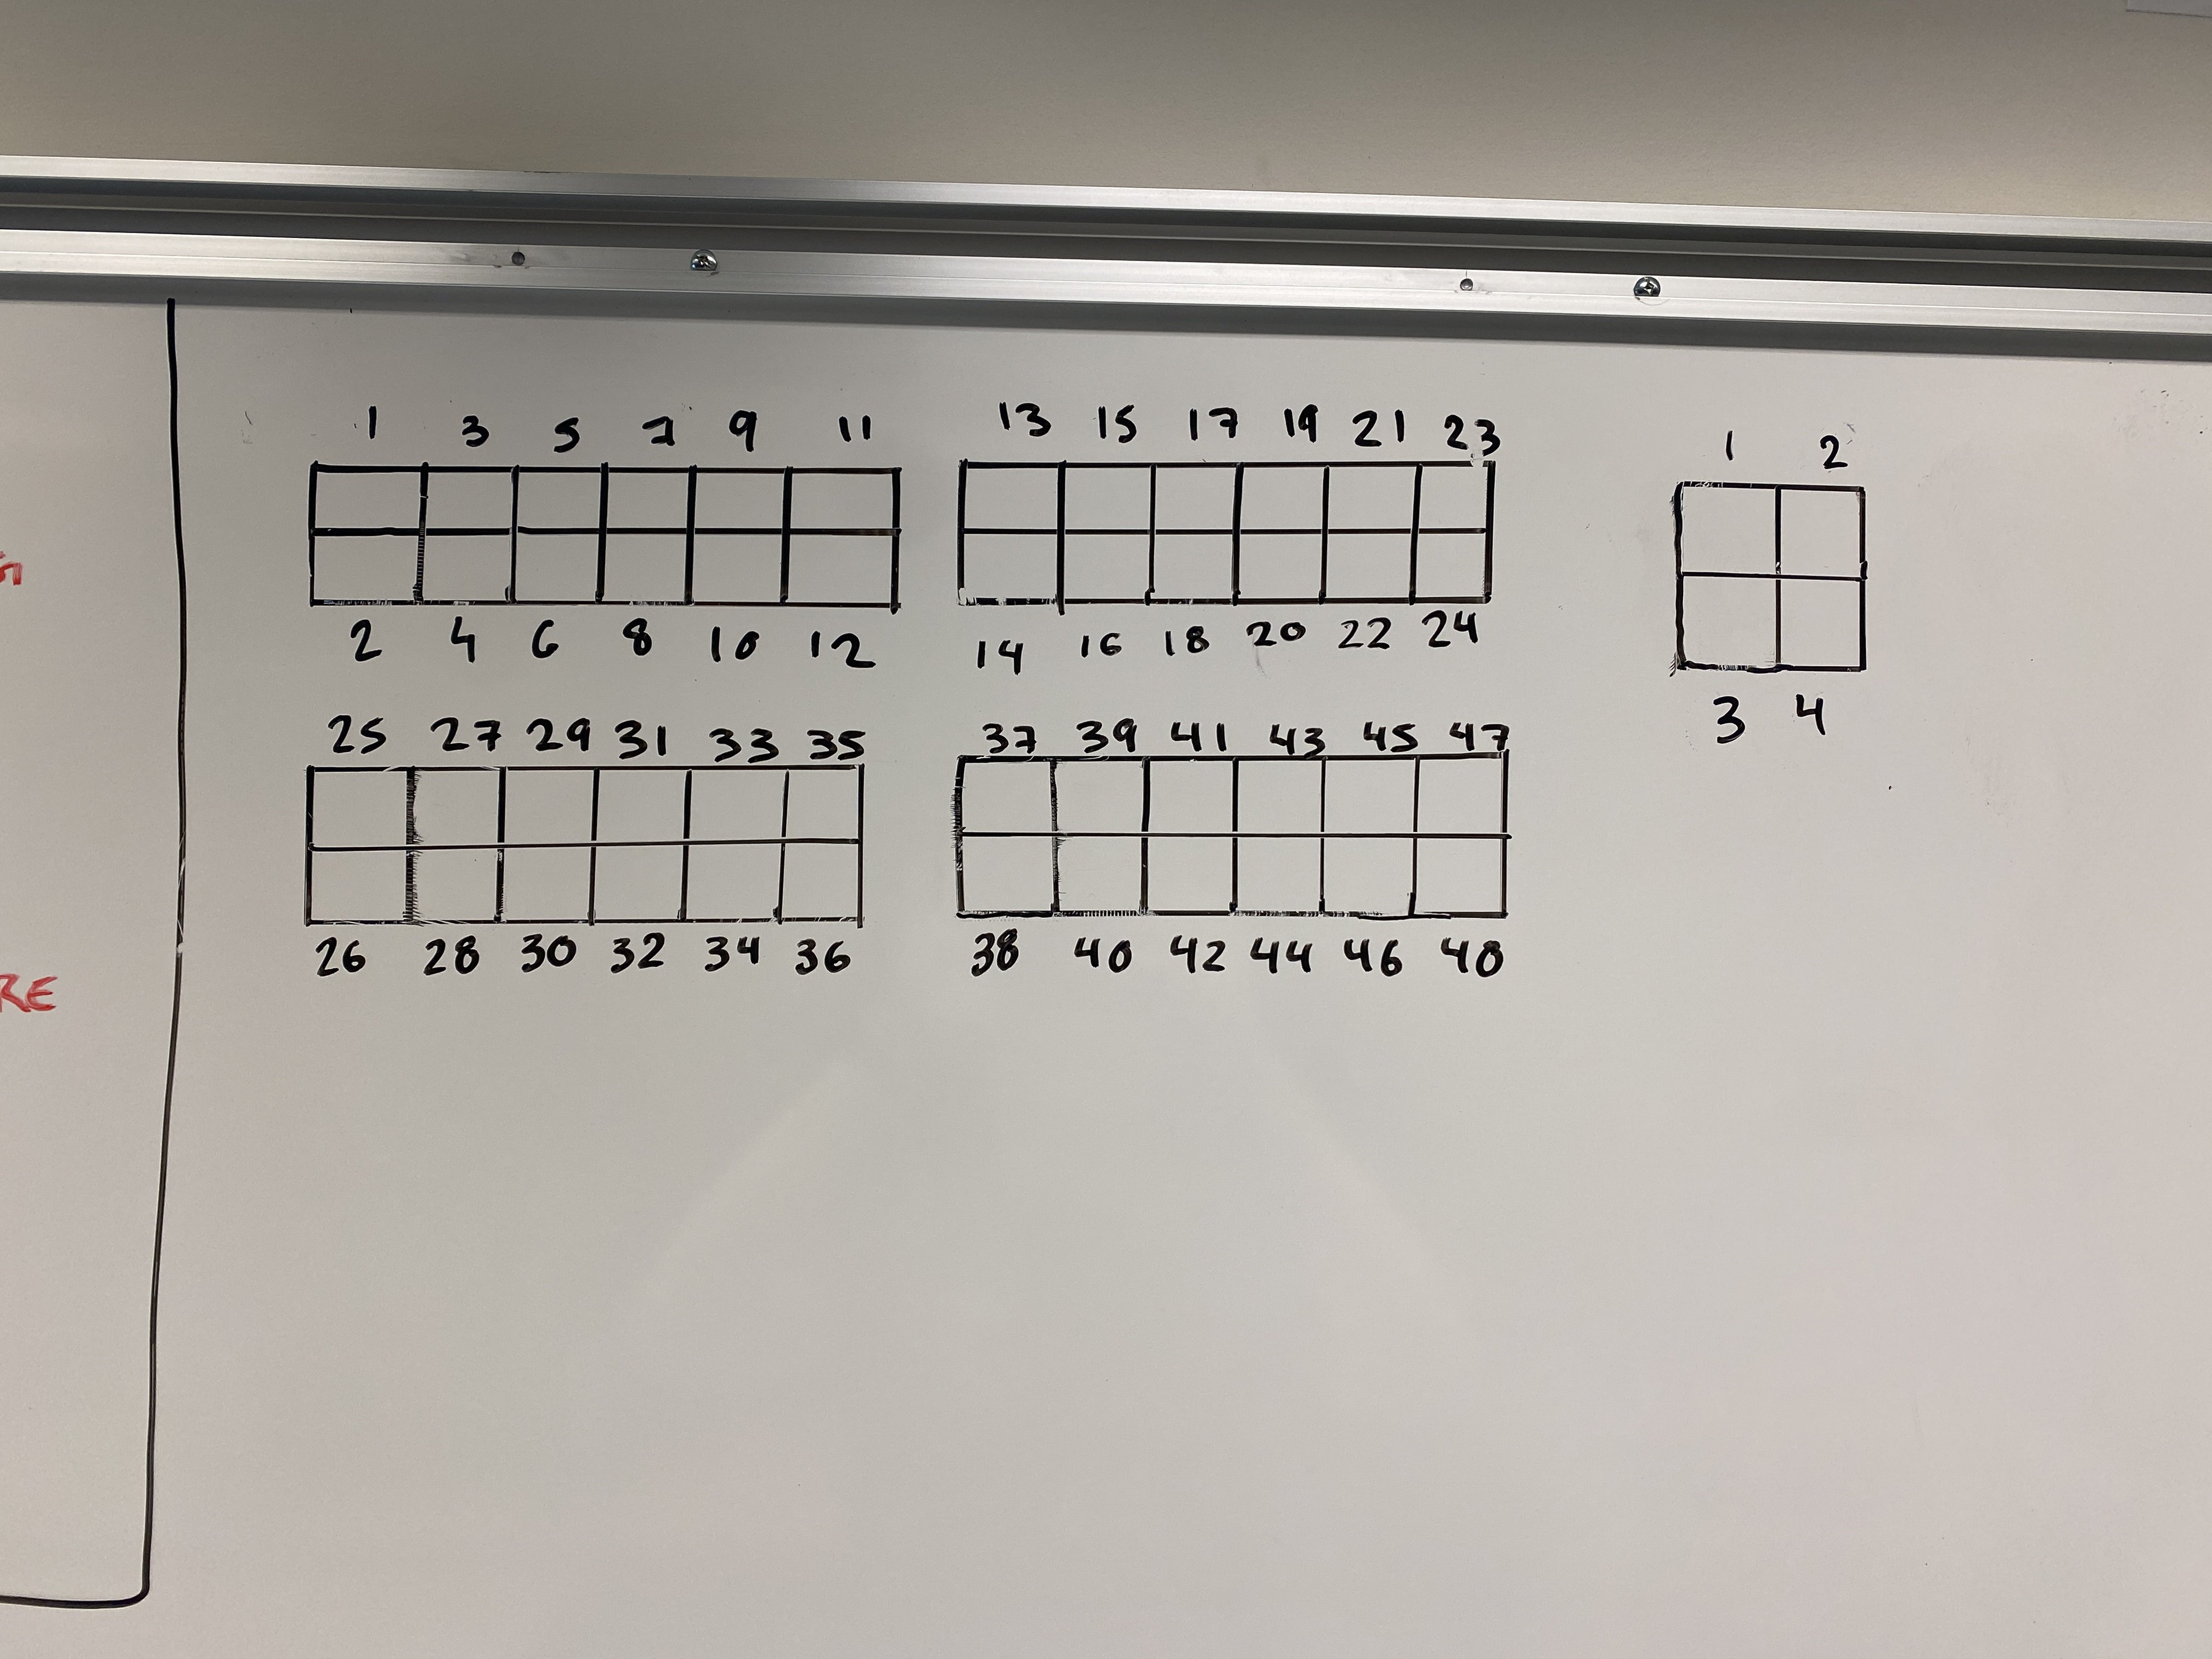 1 3 5 7 9 11
2 4 6 8 10 12
13 15 17 19 21 23
14 16 18 20 22 24
25 27 29 31 33 35
26 28 30 32 34 36
37 39 41 43 45 47
38 40 42 44 46 48
1 2
3 4
RE